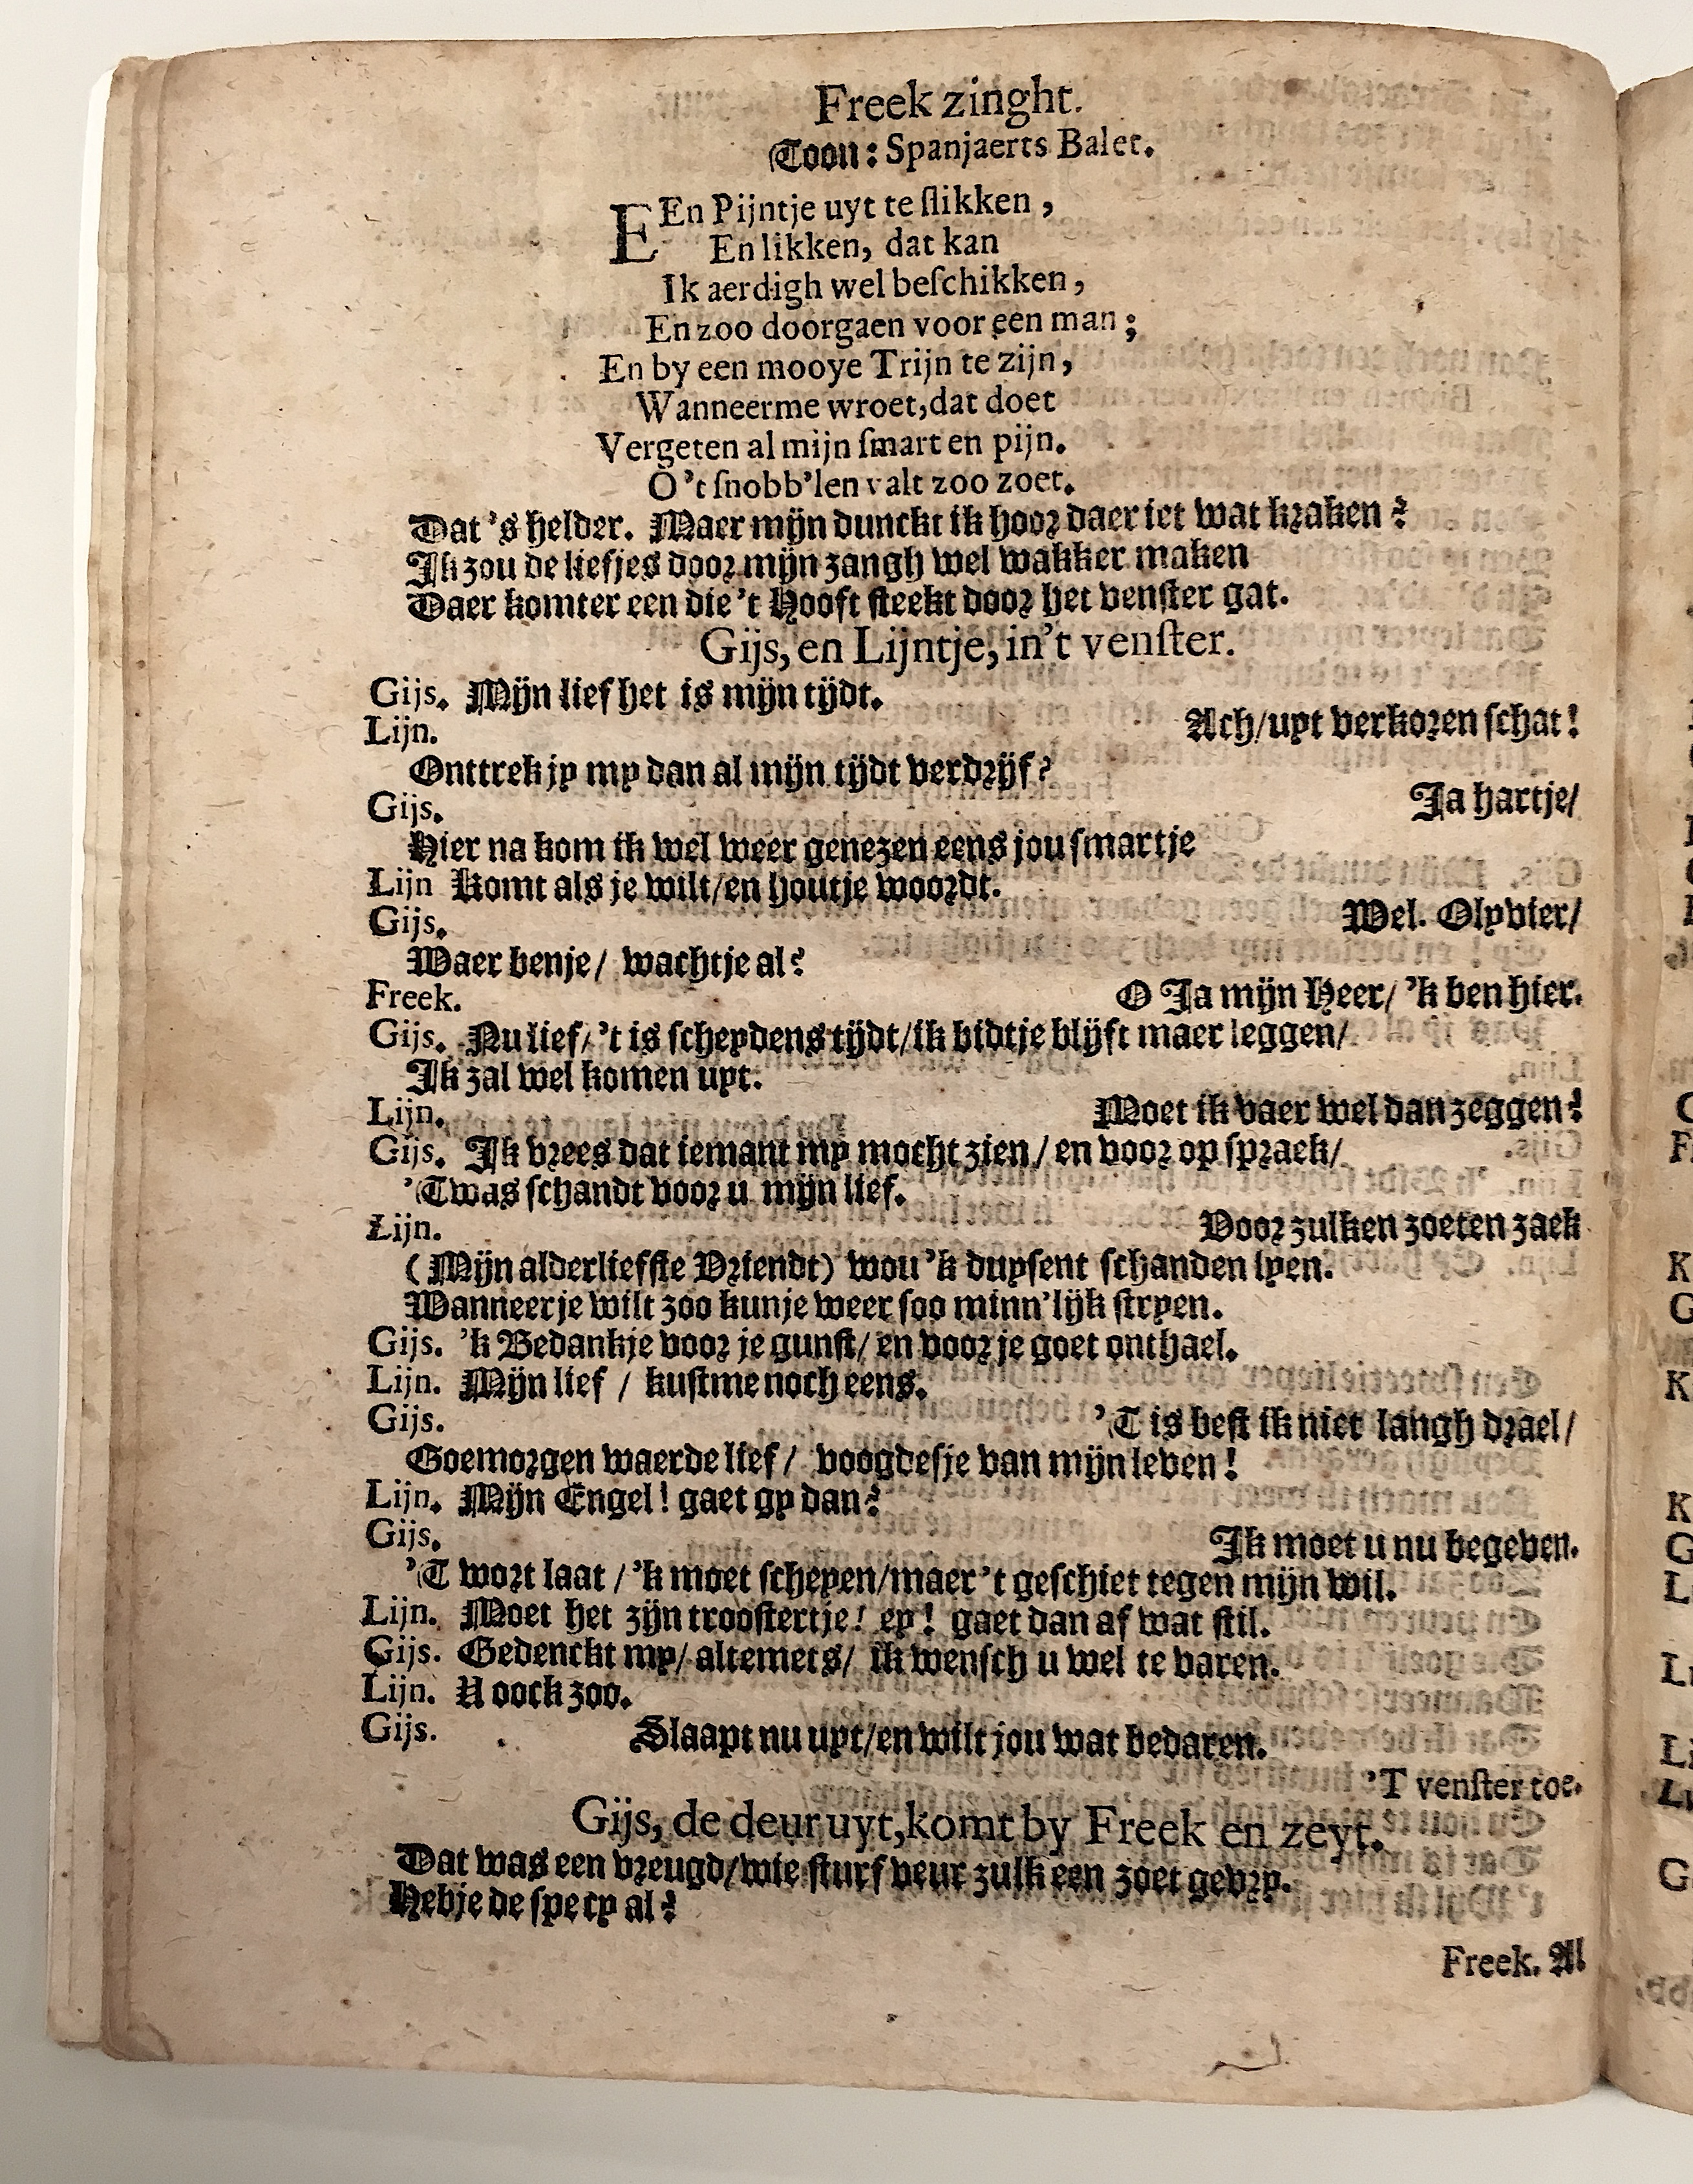 Freek zinght.
Toon: Spanjaerts Balet.
EEn Pijntje uyt te slikken,
En likken, dat kan
Ik aerdigh wel beschikken,
En zoo doorgaen voor een man;
En by een mooye Trijn te zijn,
Wanneerme wroet, dat doet
Vergeten al mijn smart en pijn.
O 't snobb'len valt zoo zoet.
Dat 's helder. Maer mijn dunckt ik hoor daer iet wat kraken?
Ik zou de liefjes door mijn zangh wel wakker maken
Daer komter een die 't Hooft steekt door het venster gat.
Gijs, en Lijntje, in't venster.
Gijs. Mijn lief het is mijn tijdt.
Lijn. Ach/uyt verkozen schat!
Onttrek jy my dan al mijn tijdt verdrijf?
Gijs. Ja hartje/
Hier na kom ik wel weer genezen eens jou smartje
Lijn Komt als je wilt/en houtje woordt.
Gijs. Wel. Olyvier/
Waer benje/ wachtje al?
Freek. O Ja mijn Heer/ 'k ben hier.
Gijs. Nu lief/ 't is scheydens tijdt/ik bidtje blijft maer leggen/
Ik zal wel komen uyt.
Lijn. Moet ik vaer wel dan zeggen?
Gijs. Ik vrees dat iemant my mocht zien/ en voor op spraek/
'Twas schandt voor u mijn lief.
Lijn. Voor zulken zoeten zaek
(Mijn alderliefste Vriendt) wou 'k duysent schanden lyen.
Wanneerje wilt zoo kunje weer soo minn'lijk stryen.
Gijs. 'k Bedankje voor je gunst/ en voor je goet onthael.
Lijn. Mijn lief / kustme noch eens.
Gijs. 'T is best ik niet langh drael/
Goemorgen waerde lief/ voogdesje van mijn leven!
Lijn. Mijn Engel! gaet gy dan?
Gijs. Ik moet u nu begeven.
'T wort laat /'k moet scheyen/maer 't geschiet tegen mijn wil.
Lijn. Moet het zijn troostertje! ey! gaet dan af wat stil.
Gijs. Gedenckt my/ altemets/ ik wensch u wel te varen.
Lijn. U oock zoo.
Gijs. Slaapt nu uyt/en wilt jou wat bedaren.
'T venster toe.
Gijs, de deur uyt, komt by Freek en zeyt.
Dat was een vreugd/wie sturf veur zulk een zoet gevry.
Hebje de spery al?
Freek. Al